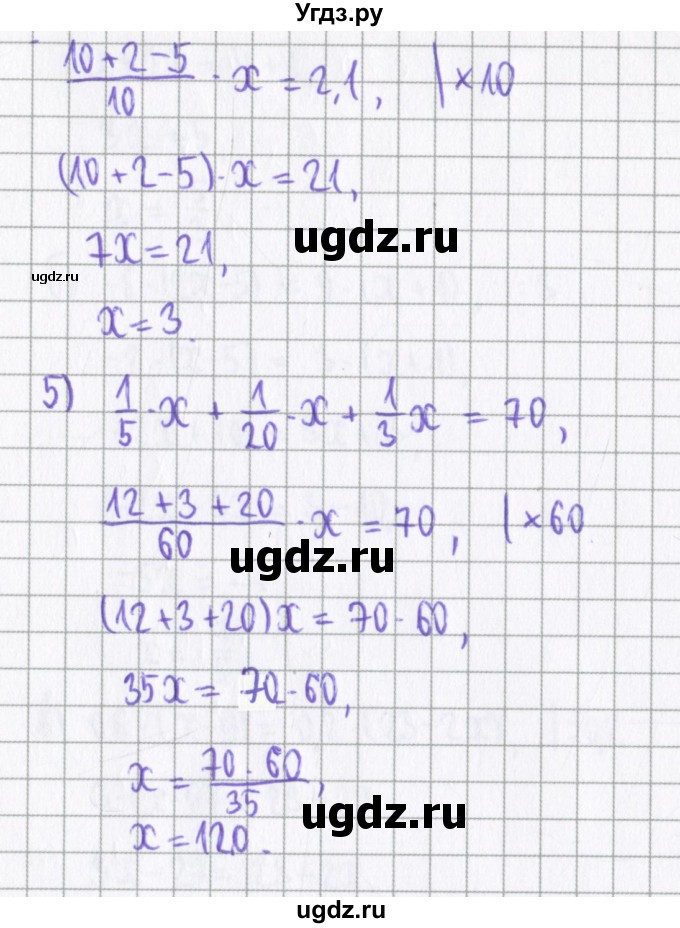 Угдз.ру
(10 + 2 − 5)/10 · x = 2,1, | × 10
(10 + 2 − 5) · x = 21,
ugdz.ru
7x = 21,
ugdz.ru
x = 3.
5) 1/5 · x + 1/20 · x + 1/3 x = 70,
(12 + 3 + 20)/60 · x = 70, | × 60
ugdz.ru
(12 + 3 + 20)x = 70 · 60,
35x = 70 · 60,
x = (70 · 60)/35,
ugdz.ru
x = 120.
ugdz.ru